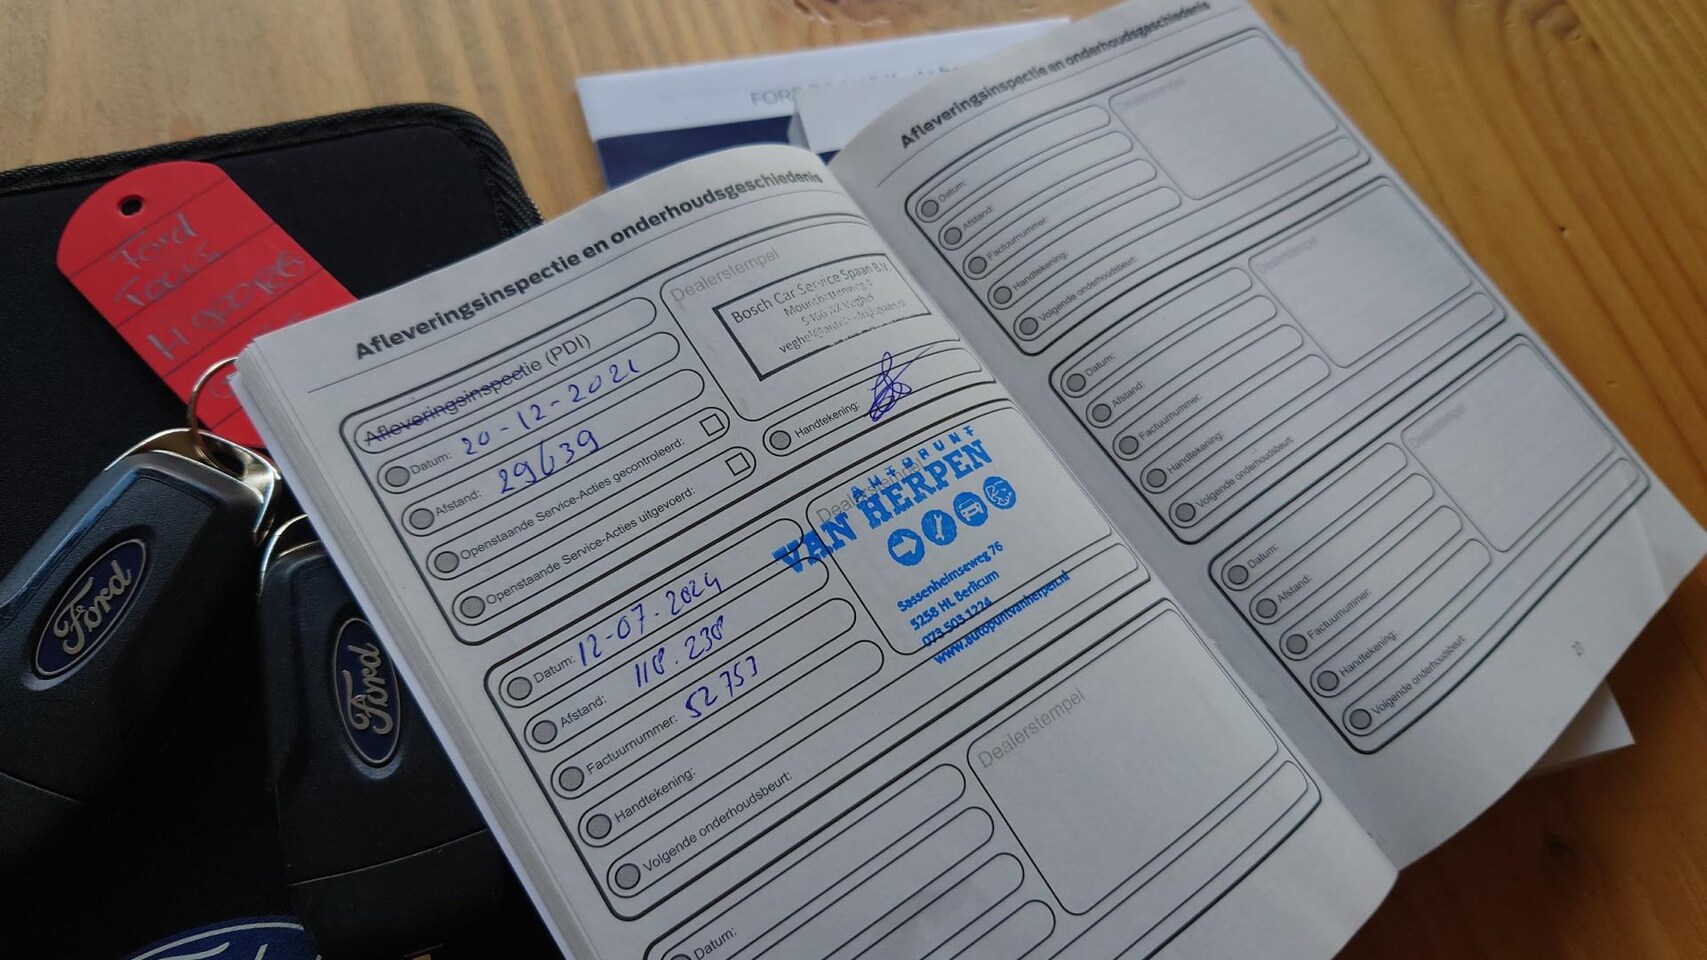 Ford
Focus
Afleveringsinspectie en onderhoudsgeschiedenis
Afleveringsinspectie (PDI)
Datum: 20-12-2021
Afstand: 29639
Openstaande Service-Acties gecontroleerd:
Openstaande Service-Acties uitgevoerd:
Dealerstempel
Bosch Car Service Spaan B.V.
Handtekening:
Datum: 12-07-2024
Afstand: 118.238
Factuurnummer: 52753
Handtekening:
Volgende onderhoudsbeurt:
Dealerstempel
AUTOPUNT
VAN HERPEN
Sassenheimseweg 76
5258 HL Berlicum
073 503 1224
www.autopuntvanherpen.nl
Dealerstempel
Datum:
Afleveringsinspectie en onderhoudsgeschiedenis
Dealerstempel
Datum:
Afstand:
Factuurnummer:
Handtekening:
Volgende onderhoudsbeurt:
Dealerstempel
Datum:
Afstand:
Factuurnummer:
Handtekening:
Volgende onderhoudsbeurt:
Dealerstempel
Datum:
Afstand:
Factuurnummer:
Handtekening:
Volgende onderhoudsbeurt:
Ford
Ford